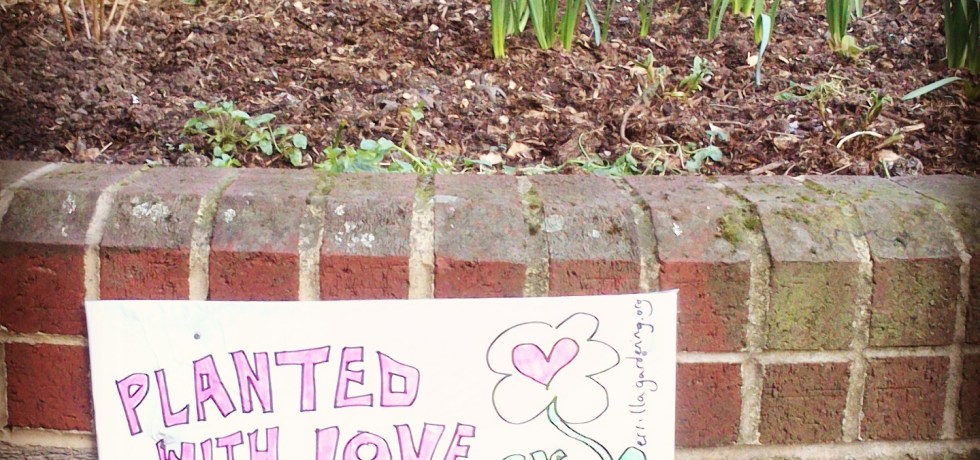 PLANTED
WITH LOVE
errillagardening.org